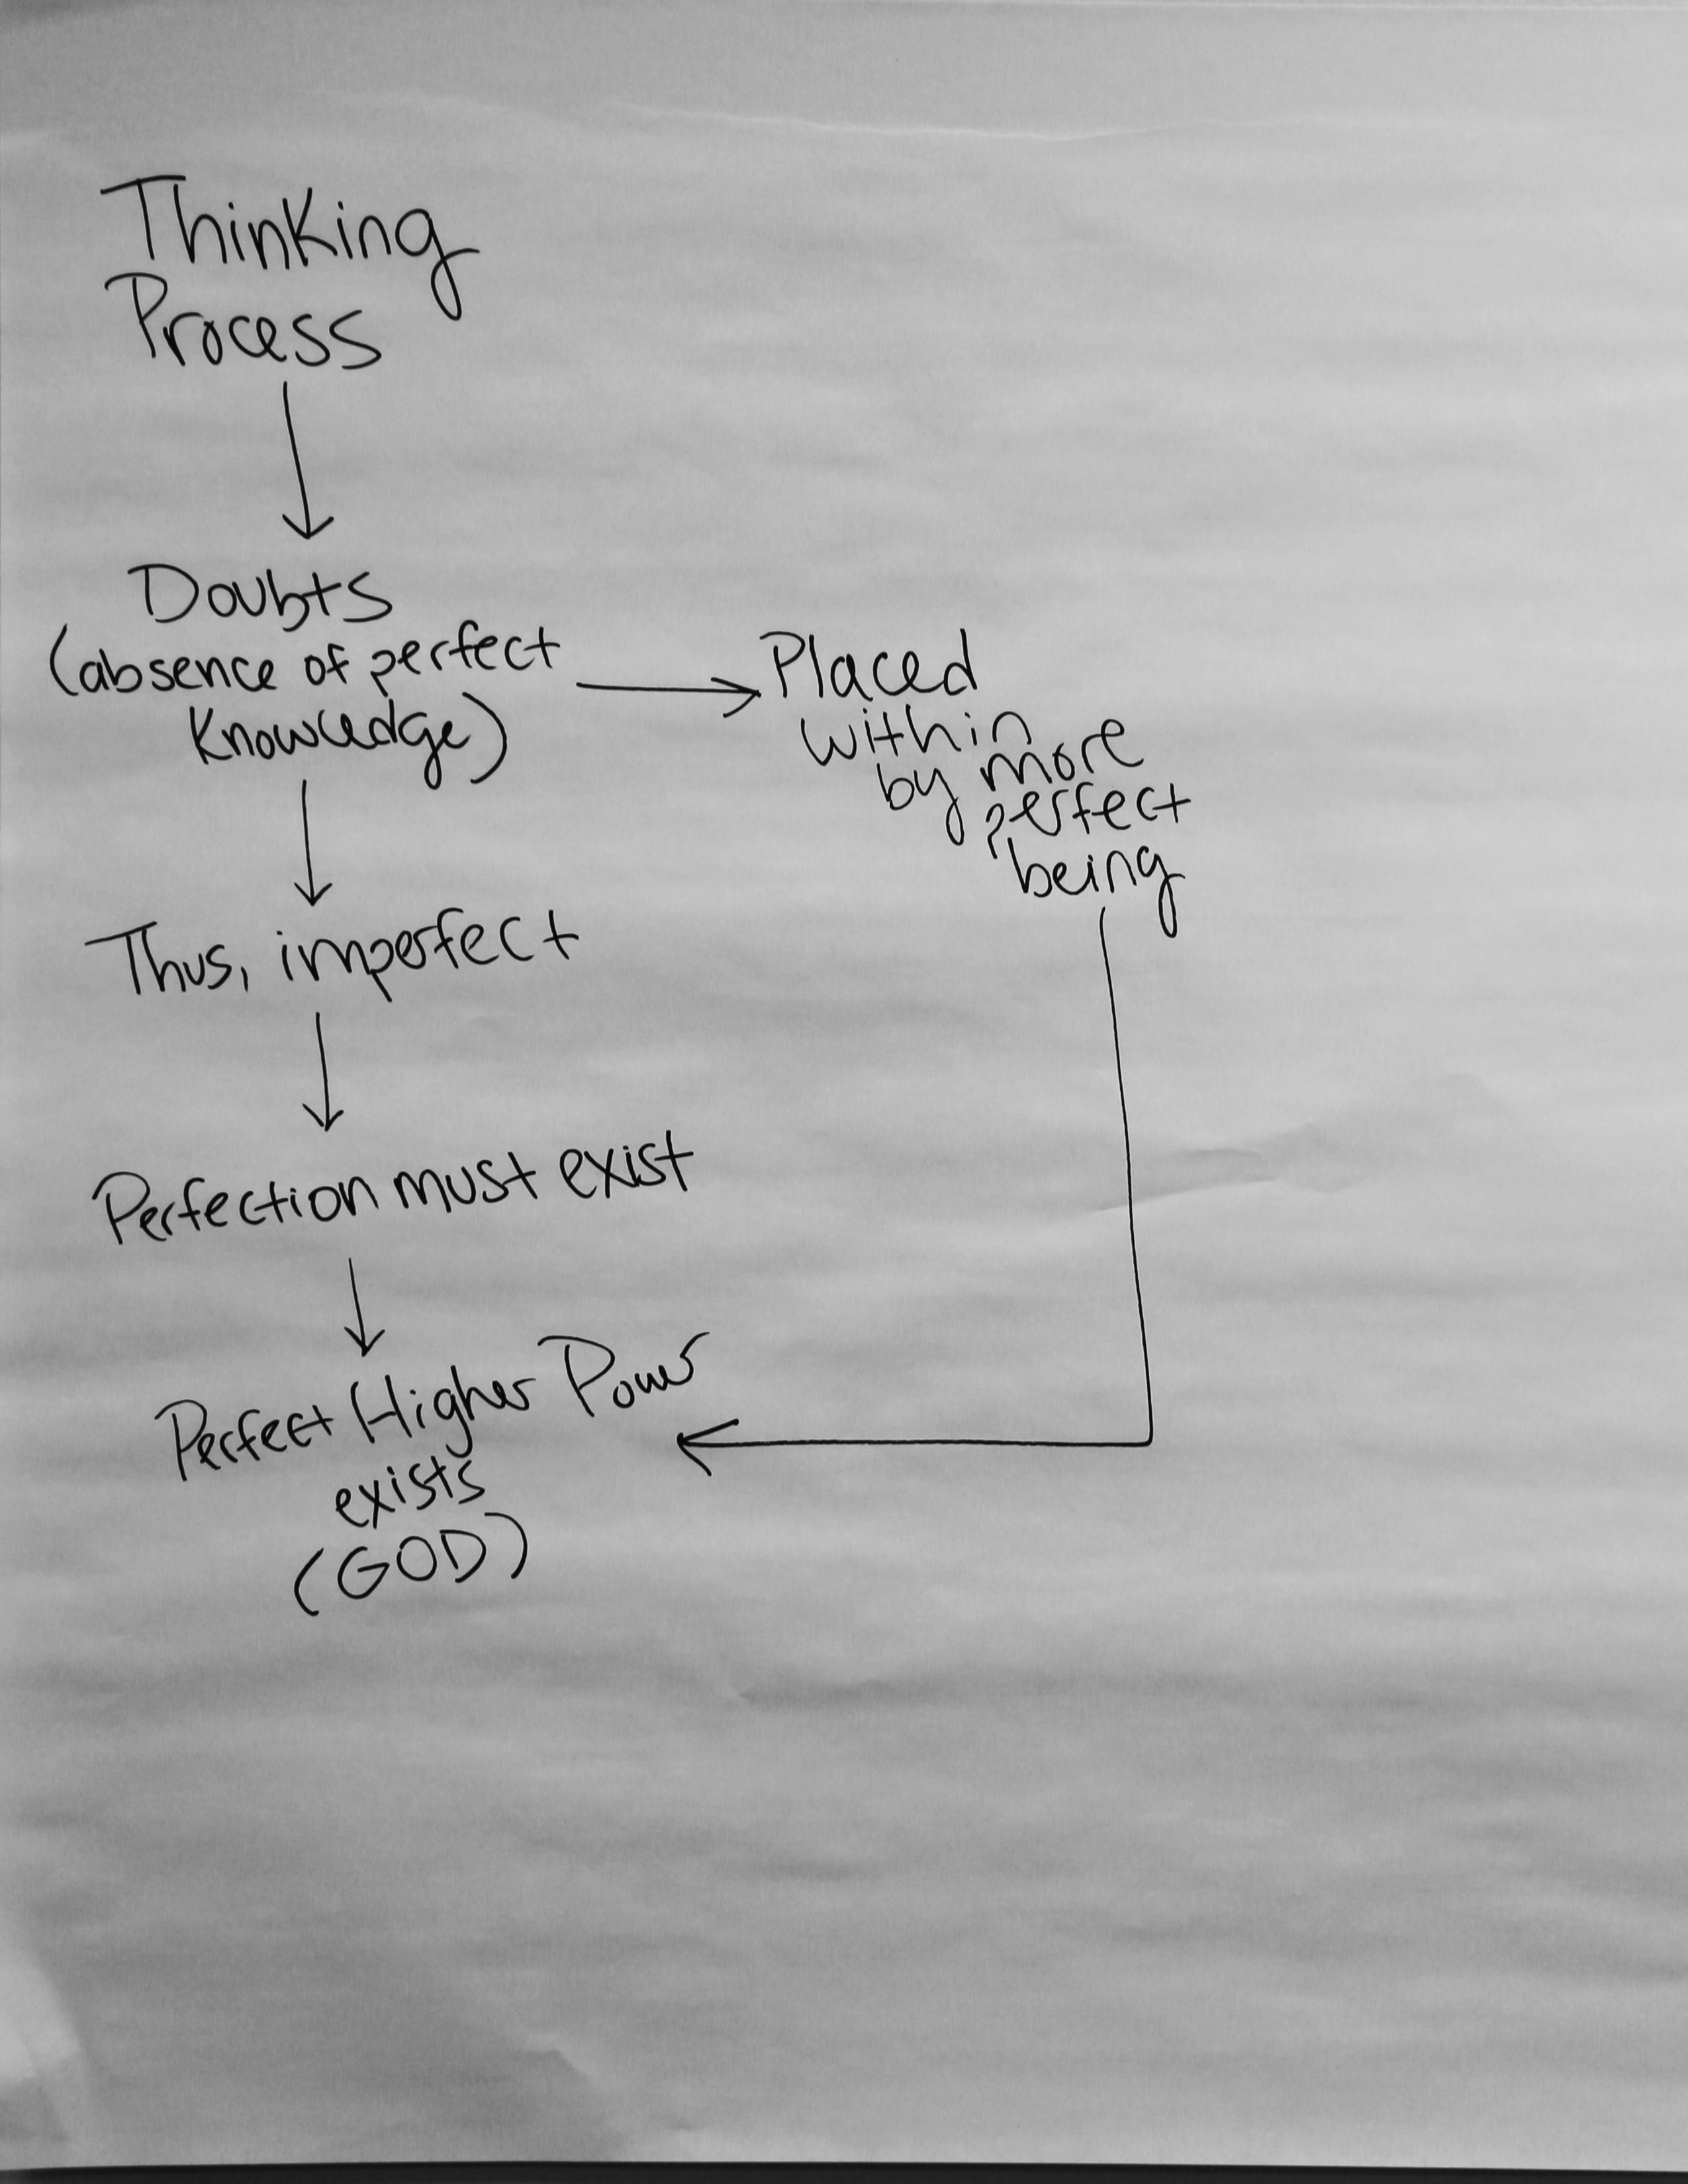 Thinking
Process
Doubts
(absence of perfect
knowledge)
Placed
within
by more
perfect
being
Thus, imperfect
Perfection must exist
Perfect Higher Power
exists
(GOD)